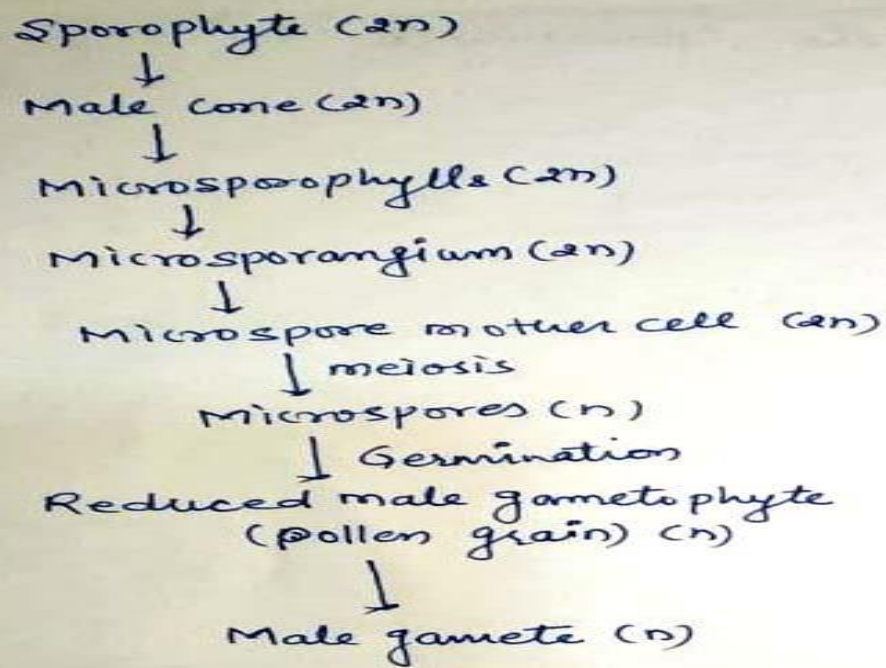 Sporophyte (2n)
↓
Male cone (2n)
↓
Microsporophylls (2n)
↓
Microsporangium (2n)
↓
Microspore mother cell (2n)
↓ meiosis
Microspores (n)
↓ Germination
Reduced male gametophyte
(pollen grain) (n)
↓
Male gamete (n)